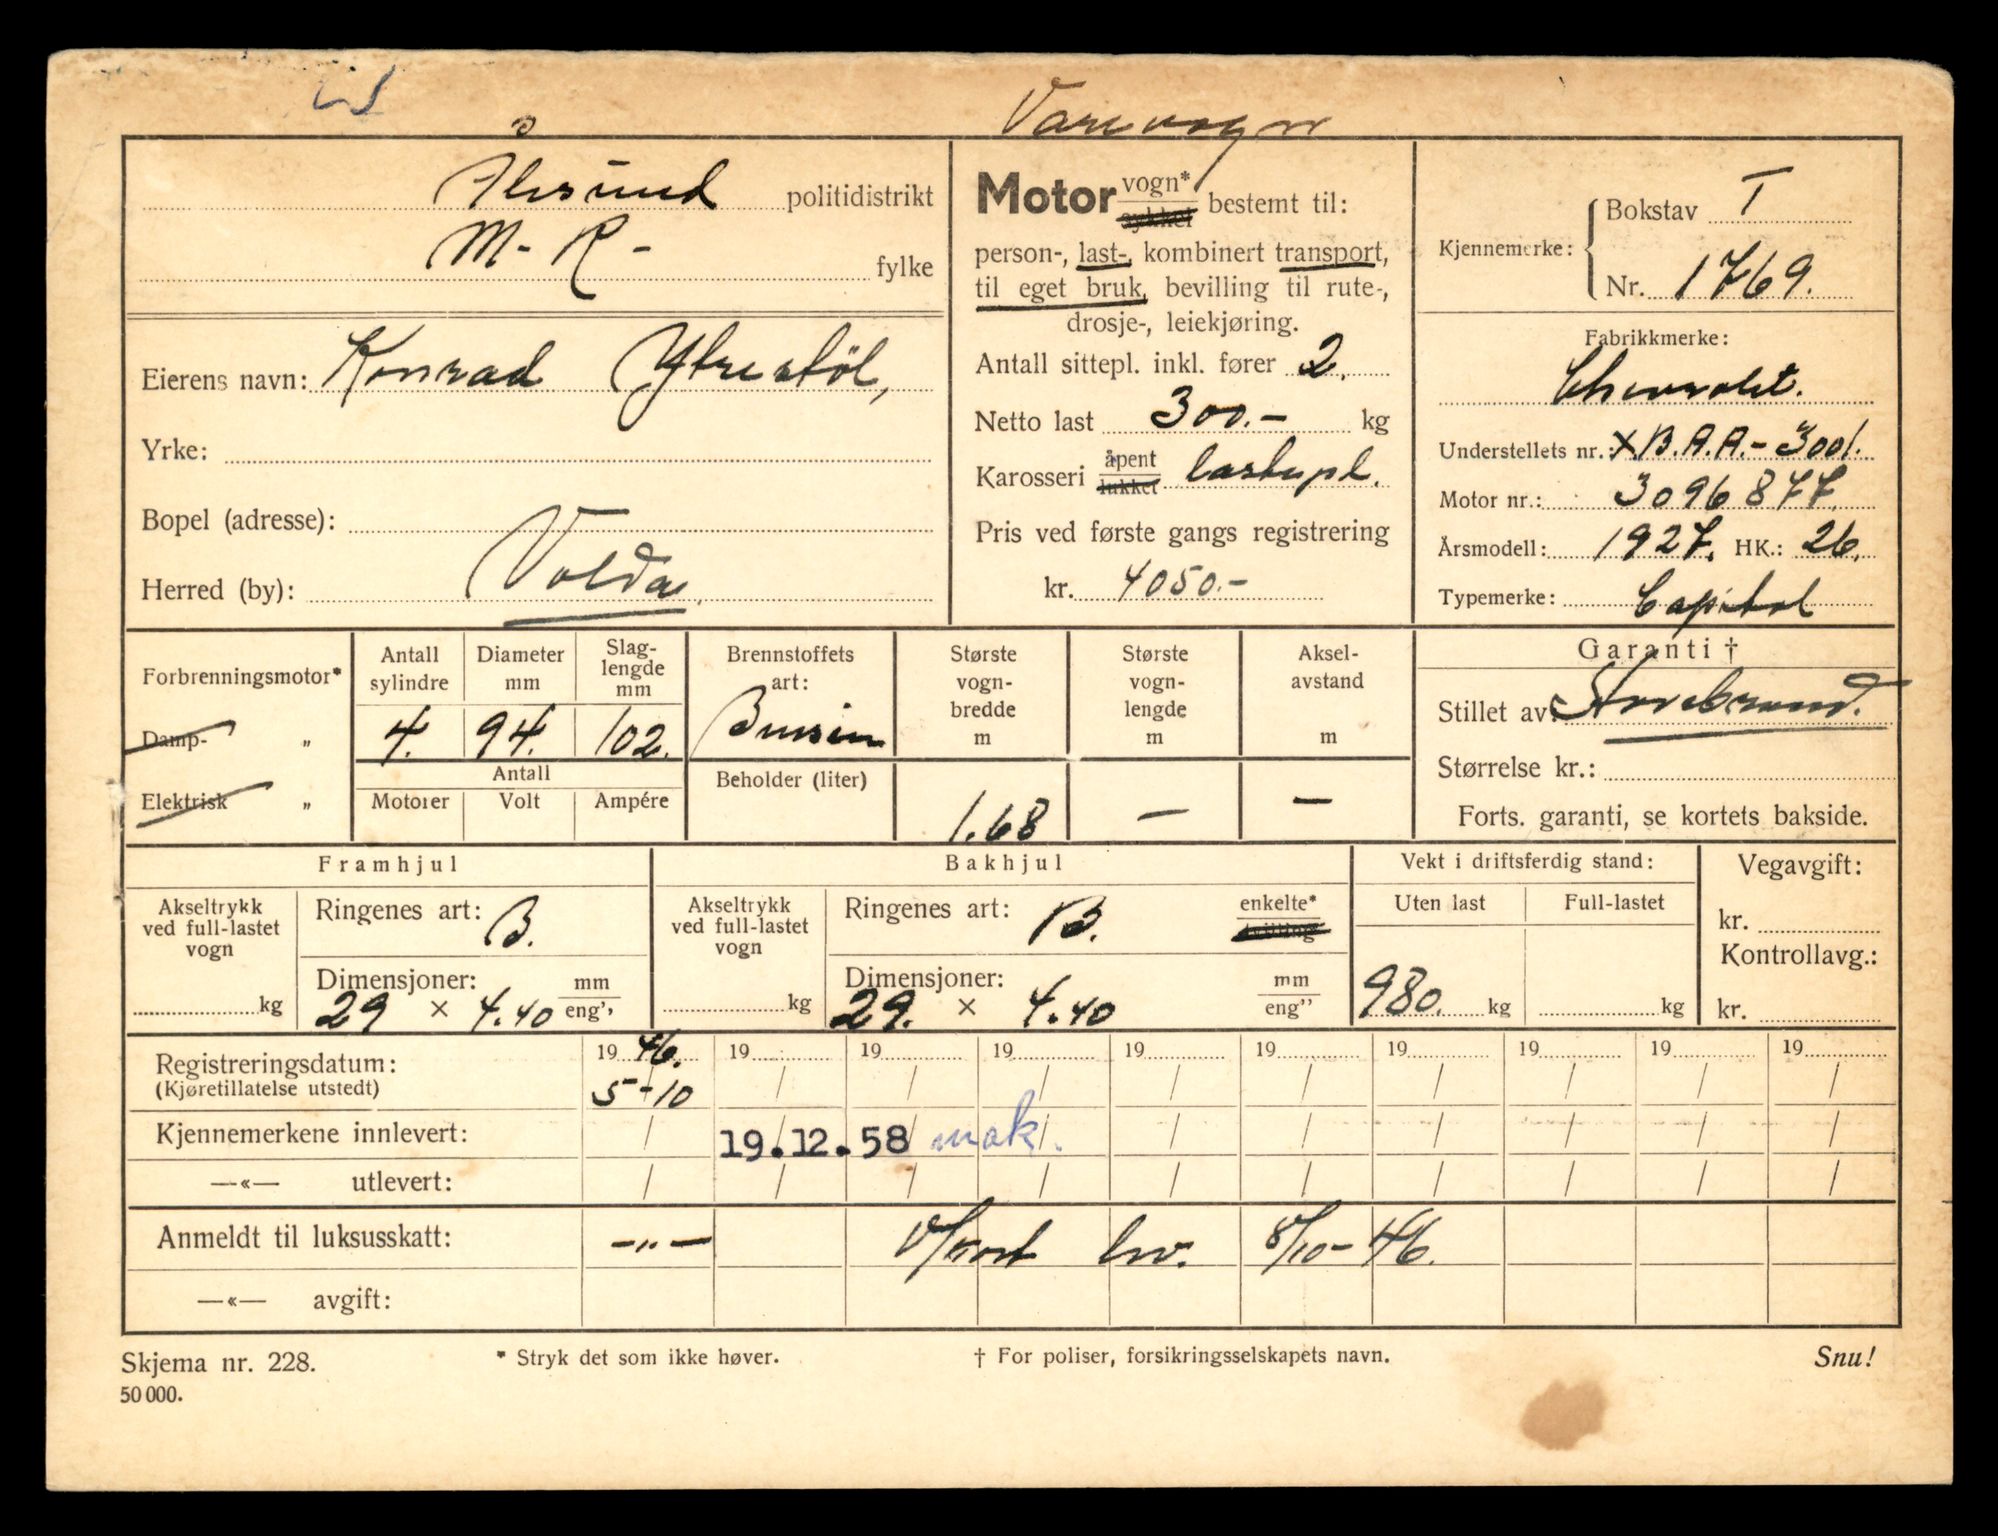 Varevogn
Ålesund politidistrikt
M-R- fylke
Eierens navn: Konrad Ytrestöl,
Yrke:
Bopel (adresse):
Herred (by): Volda.
Motor vogn* sykkel bestemt til:
person-, last-, kombinert transport,
til eget bruk, bevilling til rute-,
drosje-, leiekjøring.
Antall sittepl. inkl. fører 2.
Netto last 300.- kg
Karosseri åpent lukket lastepl.
Pris ved første gangs registrering
kr. 4050.-
Kjennemerke: Bokstav T
Nr. 1769.
Fabrikkmerke:
Chevrolet.
Understellets nr.: X.B.A.A.-3001.
Motor nr.: 3096877.
Årsmodell: 1927. HK.: 26.
Typemerke: Capitol
Forbrenningsmotor*
Damp- „
Elektrisk „
Antall sylindre 4.
Diameter mm 94.
Slag-lengde mm 102.
Antall
Motorer Volt Ampére
Brennstoffets art: Bensin
Beholder (liter)
Største vogn-bredde m 1.68
Største vogn-lengde m —
Aksel-avstand m —
Garanti †
Stillet av: Storebrand.
Størrelse kr.:
Forts. garanti, se kortets bakside.
Framhjul
Akseltrykk ved full-lastet vogn kg
Ringenes art: B.
Dimensjoner: mm
29 × 4.40 eng''
Bakhjul
Akseltrykk ved full-lastet vogn kg
Ringenes art: B. enkelte* tvilling
Dimensjoner: mm
29. × 4.40 eng''
Vekt i driftsferdig stand:
Uten last Full-lastet
980. kg kg
Vegavgift:
kr.
Kontrollavg.:
kr.
Registreringsdatum: 19 46. 19 19 19 19 19 19 19 19 19
(Kjøretillatelse utstedt) 5-10 / / / / / / / / /
Kjennemerkene innlevert: / 19.12.58 mak. / / / / / /
—«— utlevert: / / / / / / / / / /
Anmeldt til luksusskatt: —„— V/kort lev. 8/10-46.
—«— avgift:
Skjema nr. 228. * Stryk det som ikke høver. † For poliser, forsikringsselskapets navn. Snu!
50 000.